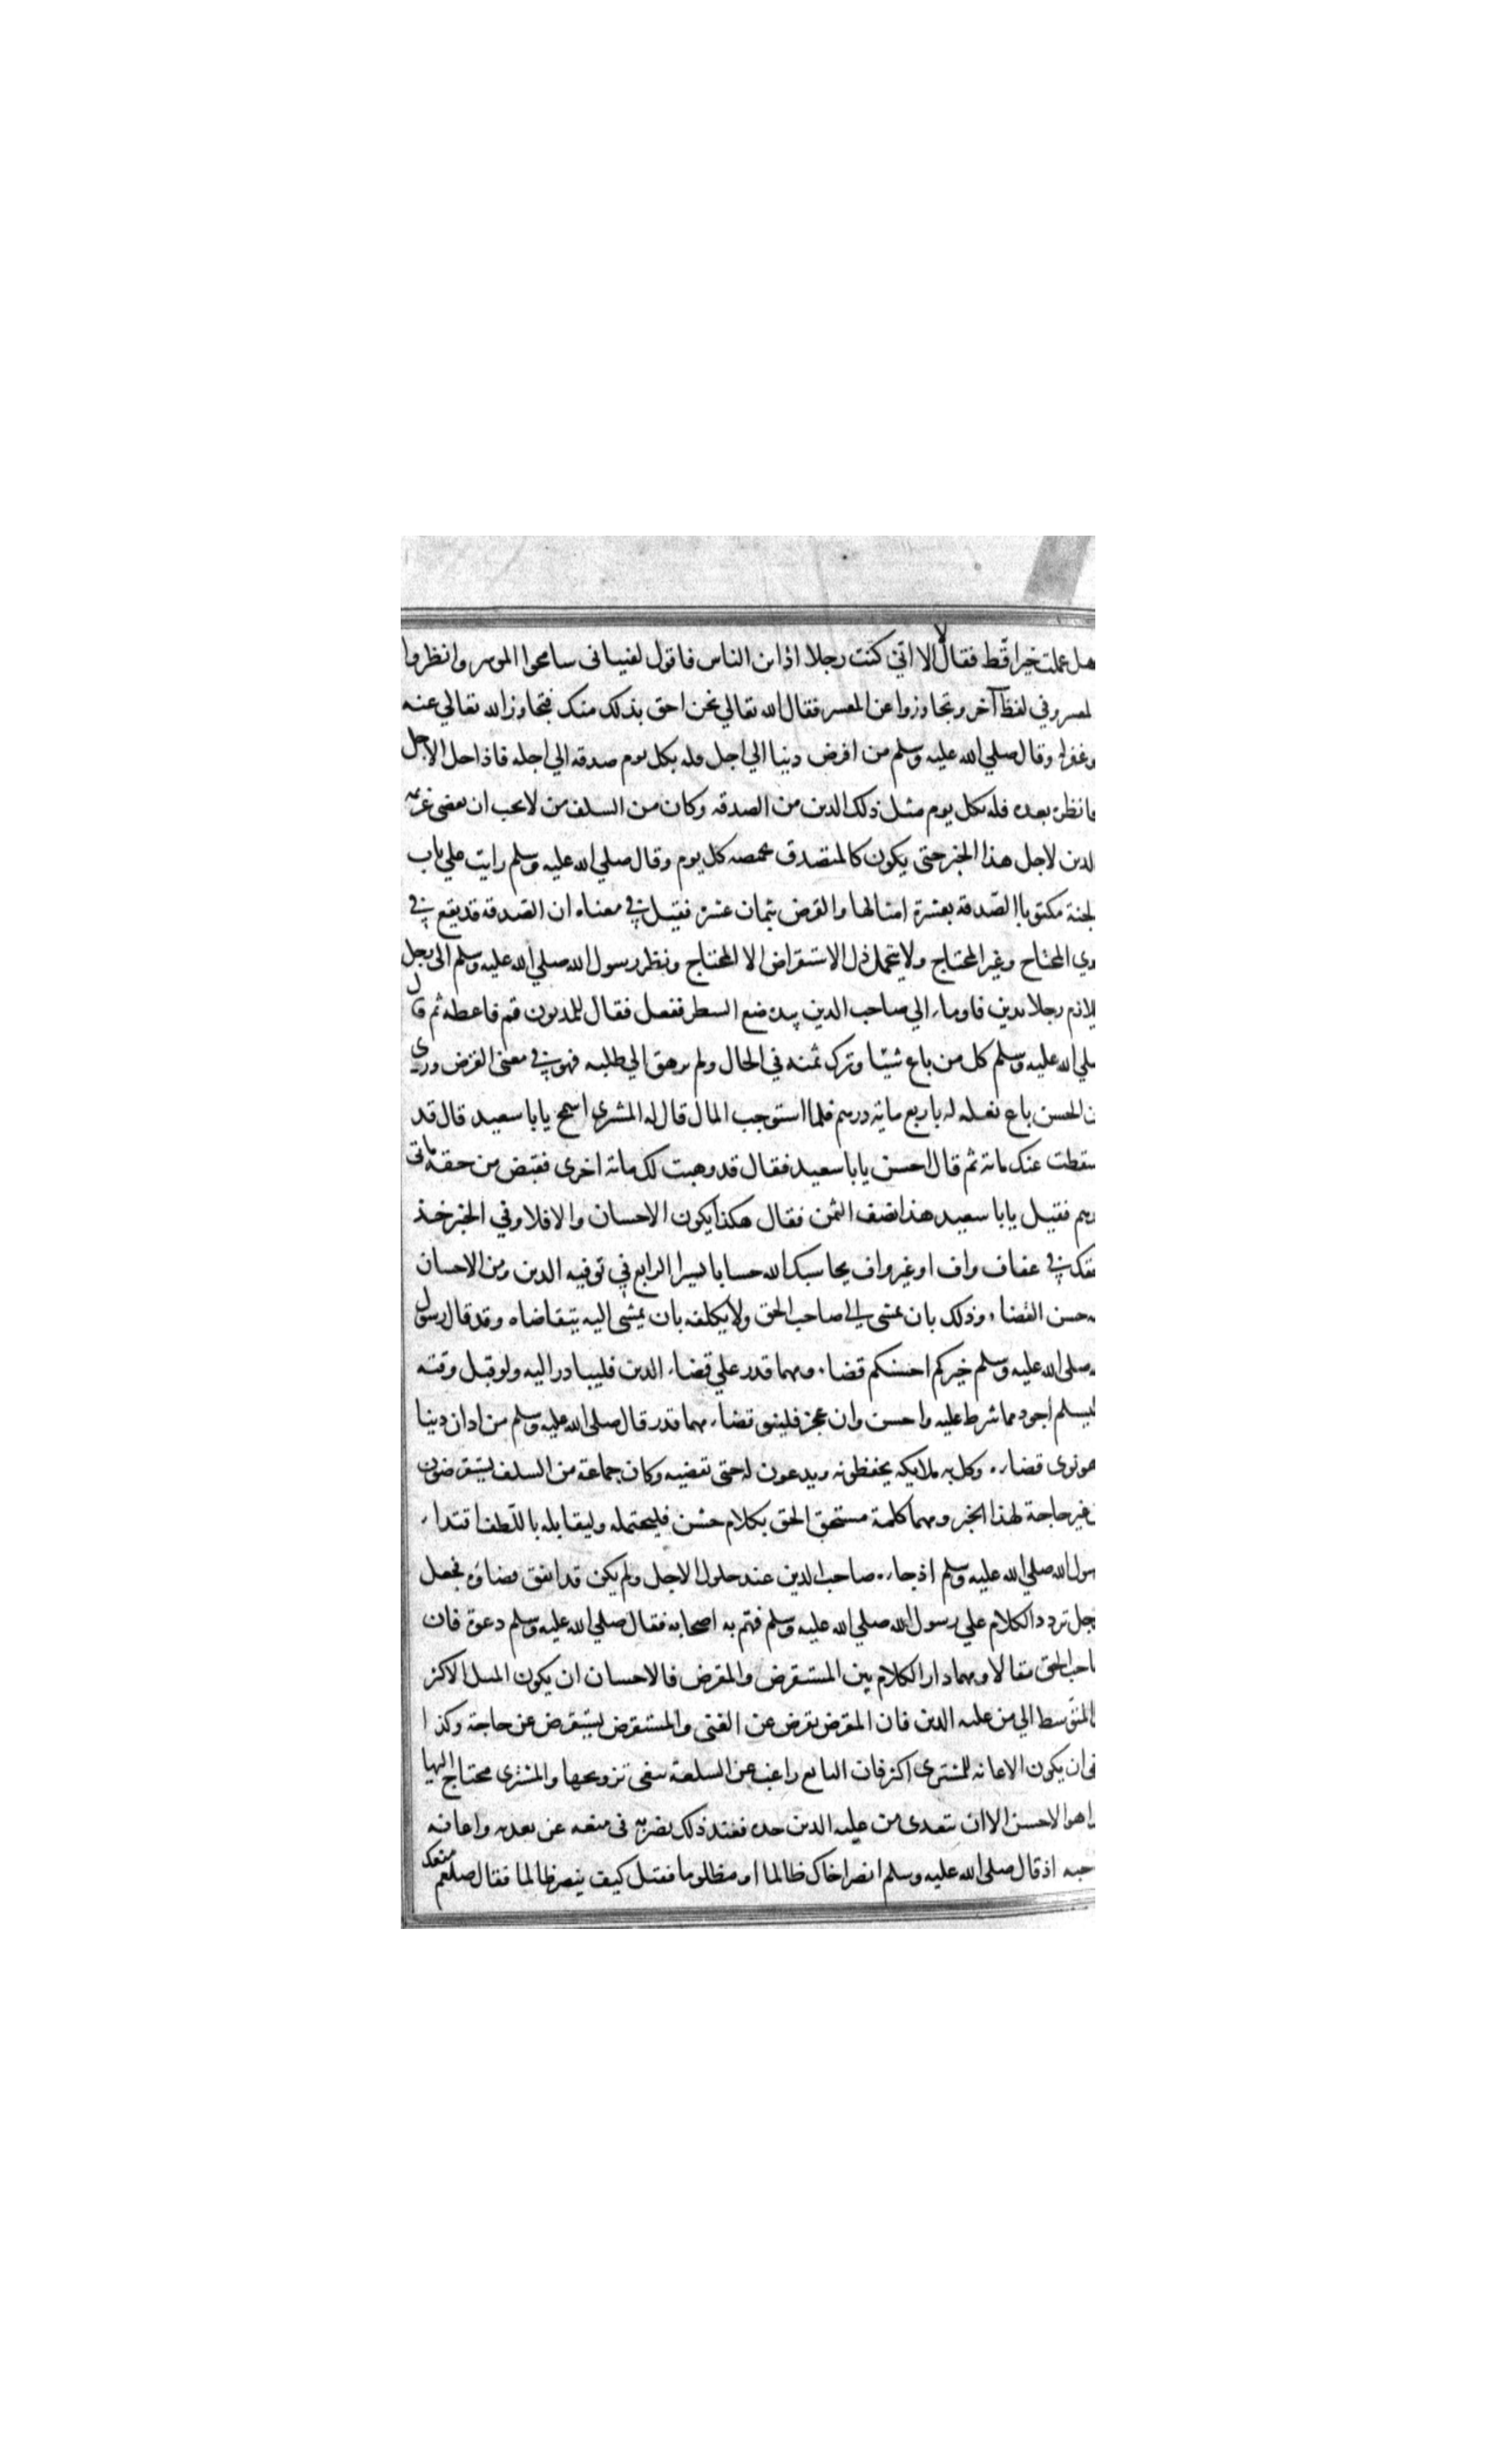 هل عملت خيرا قط فقال لا الا اني كنت رجلا اداين الناس فاقول لفتياني سامحوا الموسر وانظروا
لمعسر وفي لفظ آخر وتجاوزوا عن المعسر فقال الله تعالي نحن احق بذلك منك فتجاوز الله تعالي عنه
وغفر له وقال صلي الله عليه وسلم من اقرض دينا الي اجل فله بكل يوم صدقه الي اجله فاذا حل الاجل
فانظره بعده فله بكل يوم مثل ذلك الدين من الصدقه وكان من السلف من لا يحب ان يقضي غريمه
لدين لاجل هذا الخبر حتى يكون كالمتصدق بجميعه كل يوم وقال صلي الله عليه وسلم رايت علي باب
لجنة مكتوبا الصدقة بعشرة امثالها والقرض بثمان عشرة فقيل في معناه ان الصدقه قد يقع في
يدي المحتاج وغير المحتاج ولا يتحمل ذل الاستقراض الا المحتاج ونظر رسول الله صلي الله عليه وسلم الى رجل
يلازم رجلا بدين فاوماء الي صاحب الدين بيده ضع الشطر ففعل فقال للمديون قم فاعطه ثم قال
صلي الله عليه وسلم كل من باع شيئا وترك ثمنه في الحال ولم يرهق الي طلبه فهو في معنى القرض وروى
ن الحسن باع بغله له باربع مايه درهم فلما استوجب المال قال له المشتري اسمح يابا سعيد قال قد
سقطت عنك مائة ثم قال احسن يابا سعيد فقال قد وهبت لك مائة اخرى فقبض من حقه مائتي
رهم فقيل يابا سعيد هذا نصف الثمن فقال هكذا يكون الاحسان والا فلا وفي الخبر خذ
حقك في عفاف واف او غير واف يحاسبك الله حسابا يسيرا الرابع في توفيه الدين ومن الاحسان
يه حسن القضاء وذلك بان يمشي الي صاحب الحق ولا يكلفه بان يمشي اليه يتقاضاه وقد قال رسول
ه صلى الله عليه وسلم خيركم احسنكم قضاء ومهما قدر علي قضاء الدين فليبادر اليه ولو قبل وقته
ليسلم اجود مما شرط عليه واحسن وان عجز فلينو قضاء مهما قدر قال صلى الله عليه وسلم من ادان دينا
هو نوى قضاءه وكل به ملايكه يحفظونه ويدعون له حتى تقضيه وكان جماعة من السلف يستقرضون
ن غير حاجة لهذا الخبر ومهما كلمة مستحق الحق بكلام خشن فليحتمله وليقابله باللطف اقتداء
سول الله صلي الله عليه وسلم اذ جاءه صاحب الدين عند حلول الاجل ولم يكن قد اتفق قضاؤه فجعل
جل تردد الكلام علي رسول الله صلي الله عليه وسلم فهم به اصحابه فقال صلي الله عليه وسلم دعوه فان
احب الحق مقالا ومهما دار الكلام بين المستقرض والمقرض فالاحسان ان يكون الميل الاكثر
المتوسط الي من عليه الدين فان المقرض يقرض عن الغني والمستقرض يستقرض عن حاجة وكذا
في ان يكون الاعانه للمشتري اكثر فان البايع راغب عن السلعة يبغي ترويجها والمشتري محتاج اليها
ا هو الاحسن الا ان يتعدى من عليه الدين حده فعند ذلك نصرته في منعه عن تعديه واعانه
حبه اذ قال صلي الله عليه وسلم انصر اخاك ظالما او مظلوما فقيل كيف ينصر ظالما فقال صلعم منعك